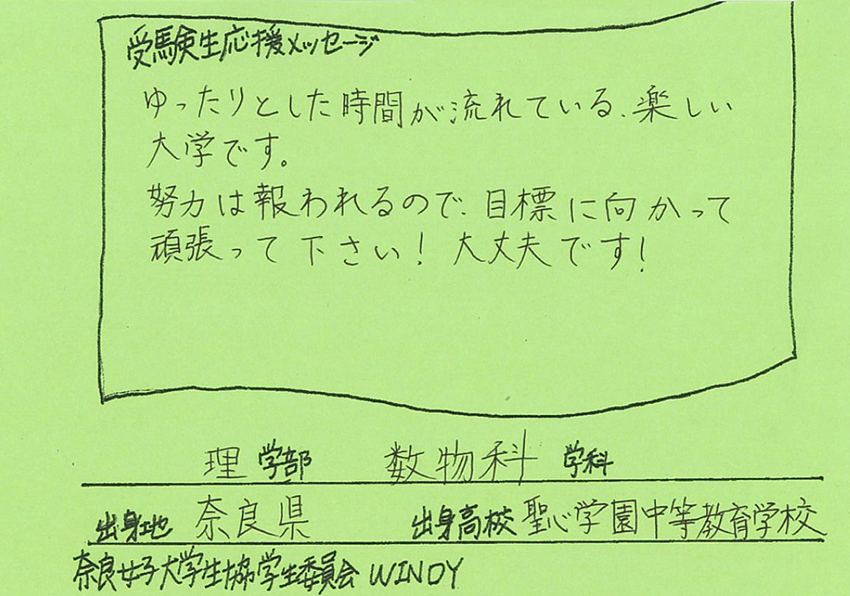 受験生応援メッセージ
ゆったりとした時間が流れている、楽しい
大学です。
努力は報われるので、目標に向かって
頑張って下さい！大丈夫です！
理 学部 数物科 学科
出身地 奈良県 出身高校 聖心学園中等教育学校
奈良女子大学生協学生委員会 WINDY